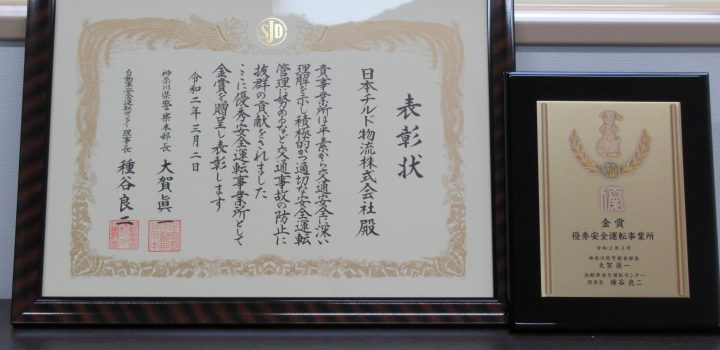 SJD
表彰状
日本チルド物流株式会社 殿
貴事業所は平素から交通安全に深い
理解を示し積極的かつ適切な安全運転
管理に努めるなど交通事故の防止に
抜群の貢献をされました
ここに優秀安全運転事業所として
金賞を贈呈し表彰します
令和二年三月二日
神奈川県警察本部長 大賀眞一
自動車安全運転センター理事長 種谷良二
SJD
金賞
優秀安全運転事業所
令和2年3月
神奈川県警察本部長
大賀眞一
自動車安全運転センター
理事長 種谷良二